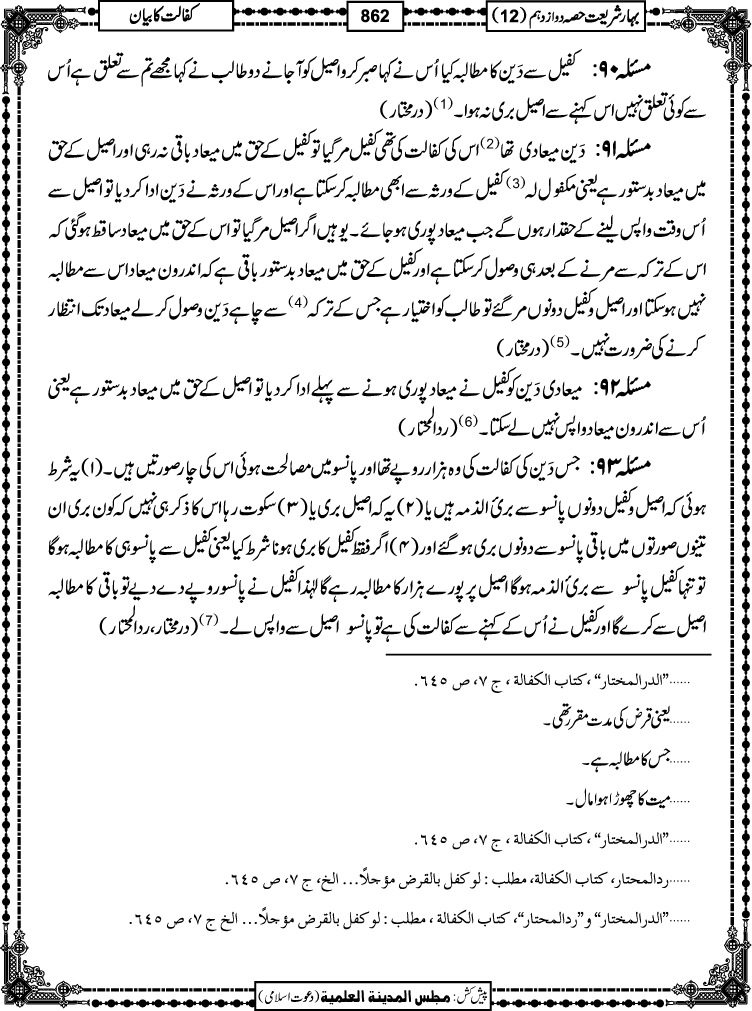 بہارِ شریعت حصہ دوازدہم (12)
862
کفالت کا بیان
مسئلہ ۹۰: کفیل سے دَین کا مطالبہ کیا اُس نے کہا صبر کرو اصیل کو آجانے دو طالب نے کہا مجھے تم سے تعلق ہے اُس
سے کوئی تعلق نہیں اس کہنے سے اصیل بری نہ ہوا۔(1) (درمختار)
مسئلہ ۹۱: دَین میعادی تھا(2) اس کی کفالت کی تھی کفیل مرگیا تو کفیل کے حق میں میعاد باقی نہ رہی اور اصیل کے حق
میں میعاد بدستور ہے یعنی مکفول لہ(3) کفیل کے ورثہ سے ابھی مطالبہ کرسکتا ہے اور اس کے ورثہ نے دَین ادا کردیا تو اصیل سے
اُس وقت واپس لینے کے حقدار ہوں گے جب میعاد پوری ہوجائے۔ یوہیں اگر اصیل مرگیا تو اس کے حق میں میعاد ساقط ہوگئی کہ
اس کے ترکہ سے مرنے کے بعد ہی وصول کرسکتا ہے اور کفیل کے حق میں میعاد بدستور باقی ہے کہ اندرون میعاد اس سے مطالبہ
نہیں ہوسکتا اور اصیل و کفیل دونوں مرگئے تو طالب کو اختیار ہے جس کے ترکہ(4) سے چاہے دَین وصول کرلے میعاد تک انتظار
کرنے کی ضرورت نہیں۔(5) (درمختار)
مسئلہ ۹۲: میعادی دَین کو کفیل نے میعاد پوری ہونے سے پہلے ادا کردیا تو اصیل کے حق میں میعاد بدستور ہے یعنی
اُس سے اندرون میعاد واپس نہیں لے سکتا۔(6) (ردالمحتار)
مسئلہ ۹۳: جس دَین کی کفالت کی وہ ہزار روپے تھا اور پانسو میں مصالحت ہوئی اس کی چار صورتیں ہیں۔ (۱) یہ شرط
ہوئی کہ اصیل و کفیل دونوں پانسو سے بریٔ الذمہ ہیں یا (۲) یہ کہ اصیل بری یا (۳) سکوت رہا اس کا ذکر ہی نہیں کہ کون بری ان
تینوں صورتوں میں باقی پانسو سے دونوں بری ہوگئے اور (۴) اگر فقط کفیل کا بری ہونا شرط کیا یعنی کفیل سے پانسو ہی کا مطالبہ ہوگا
تو تنہا کفیل پانسو سے بریٔ الذمہ ہوگا اصیل پر پورے ہزار کا مطالبہ رہے گا لہٰذا کفیل نے پانسو روپے دے دیے تو باقی کا مطالبہ
اصیل سے کرے گا اور کفیل نے اُس کے کہنے سے کفالت کی ہے تو پانسو اصیل سے واپس لے۔(7) (درمختار، ردالمحتار)
......”الدرالمختار“، کتاب الکفالة ، ج ٧، ص ٦٤٥.
......یعنی قرض کی مدت مقرر تھی۔
......جس کا مطالبہ ہے۔
......میت کا چھوڑا ہوا مال۔
......”الدرالمختار“ ، کتاب الکفالة ، ج ٧، ص ٦٤٥.
......ردالمحتار، کتاب الکفالة، مطلب : لو کفل بالقرض مؤجلًا... الخ، ج ٧، ص ٦٤٥.
......”الدرالمختار“ و ”ردالمحتار“، کتاب الکفالة ، مطلب : لو کفل بالقرض مؤجلًا... الخ ج ٧، ص ٦٤٥.
پیش کش: مجلس المدینة العلمیة (دعوت اسلامی)